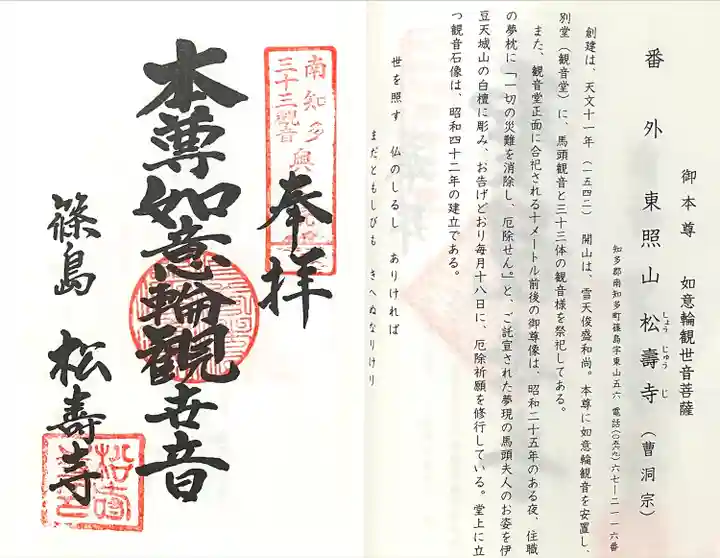 番外 東照山 松壽寺（曹洞宗）
しょう じゅう じ
御本尊 如意輪観世音菩薩
知多郡南知多町篠島字東山五六 電話(〇五六九)六七―二一一六番
創建は、天文十一年（一五四二） 開山は、雪天俊盛和尚。本尊に如意輪観音を安置し、
別堂（観音堂）に、馬頭観音と三十三体の観音様を祭祀してある。
また、観音堂正面に合祀される十メートル前後の御尊像は、昭和二十五年のある夜、住職
の夢枕に「一切の災難を消除し、厄除せん。」と、ご託宣された夢現の馬頭夫人のお姿を伊
豆天城山の白檀に彫み、お告げどおり毎月十八日に、厄除祈願を修行している。堂上に立
つ観音石像は、昭和四十二年の建立である。
世を照す 仏のしるし ありければ
まだともしびも きへぬなりけり
奉拝
南知多
三十三観音
奥
本尊如意輪觀世音
篠島 松壽寺